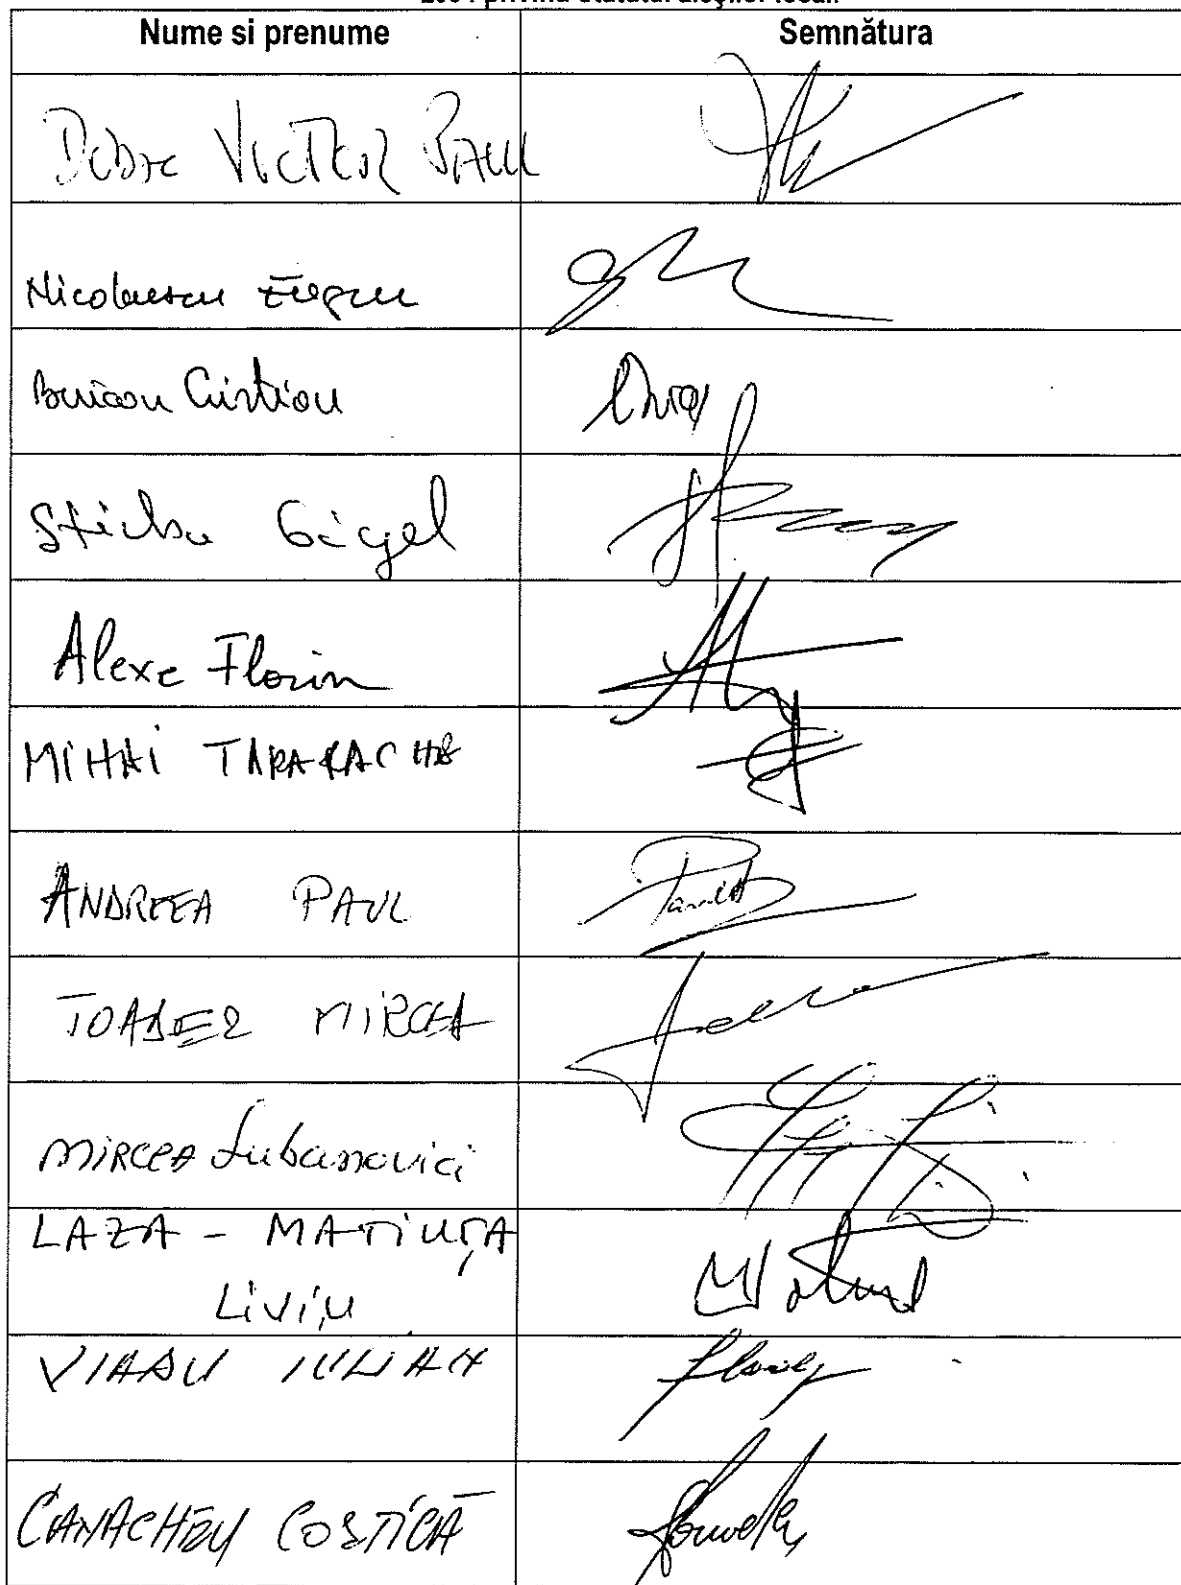 2004 privind statutul aleșilor locali
Nume si prenume Semnătura
DOBRE VICTOR PAUL
Nicolaescu Eugen
Buican Cristian
Știrbu Gigel
Alexe Florin
MIHAI TARARACHE
ANDREEA PAUL
TOADER MIRCEA
MIRCEA Lubanovici
LAZA - MATIUȚA
LIVIU
VLADU IULIAN
CANACHEU COSTICĂ